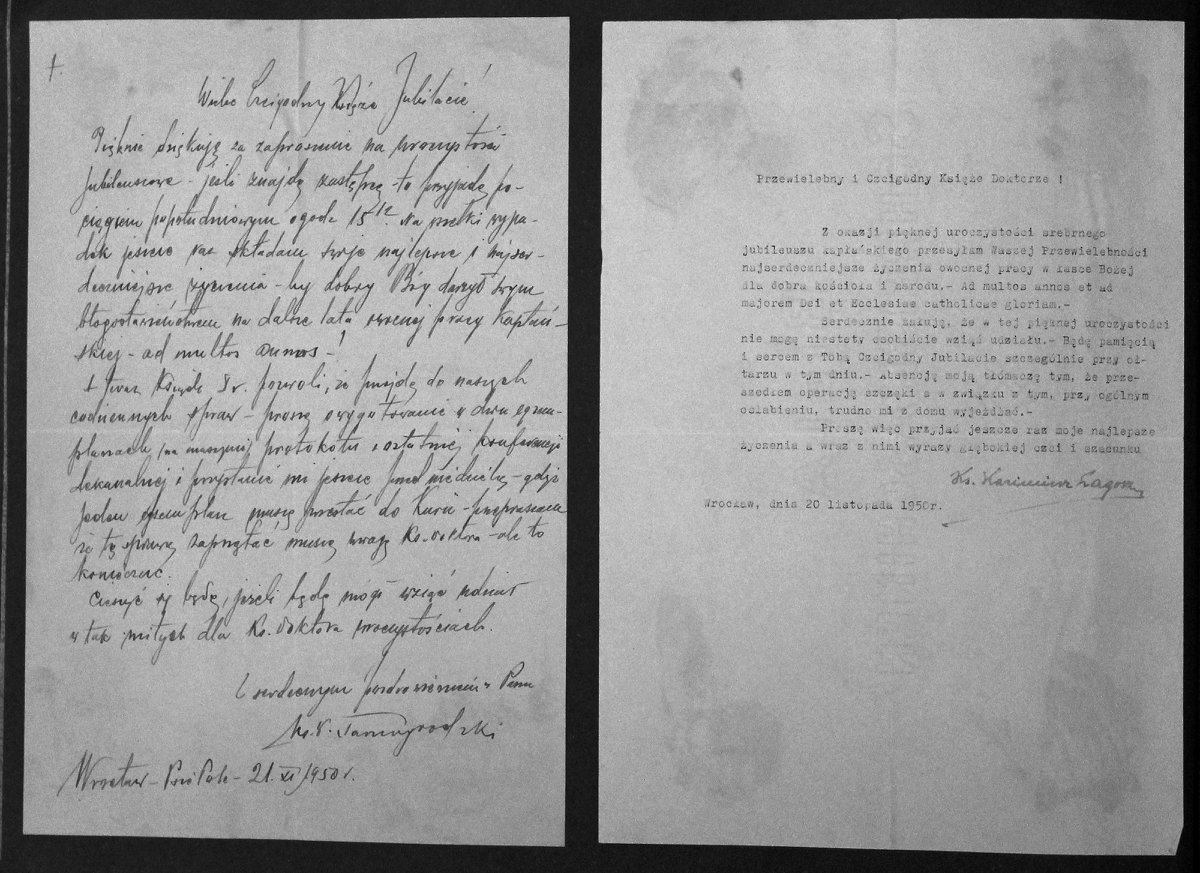 †.
Wielce Czcigodny Księże Jubilacie!
Pięknie dziękuję za zaproszenie na uroczystości
jubileuszowe - jeśli znajdę zastępcę - to przyjadę po-
ciągiem popołudniowym o godz. 15¹². Na wszelki wypa-
dek jeszcze raz składam swoje najlepsze i najser-
deczniejsze życzenia - by dobry Bóg darzył swym
błogosławieństwem na dalsze lata owocnej pracy kapłań-
skiej - ad multos annos!
A teraz Ksiądz Dr. pozwoli, że przejdę do naszych
codziennych spraw - proszę o wygotowanie w dwu egzem-
plarzach (na maszynie) protokołu z ostatniej konferencji
dekanalnej i przysłanie mi jeszcze przed niedzielą - gdyż
jeden egzemplarz muszę przesłać do Kurii - przepraszam
że tą sprawą zaprzątać muszę uwagę Ks. Doktora - ale to
konieczne.
Cieszyć się będę, jeżeli będę mógł wziąć udział
w tak miłych dla Ks. Doktora uroczystościach.
Z serdecznym pozdrowieniem w Panu
Wrocław - Psie Pole - 21. XI. 1950 r.
Przewielebny i Czcigodny Księże Doktorze !
Z okazji pięknej uroczystości srebrnego
jubileuszu kapłańskiego przesyłam Waszej Przewielebności
najserdeczniejsze życzenia owocnej pracy w łasce Bożej
dla dobra kościoła i narodu.- Ad multos annos et ad
majorem Dei et Ecclesiae catholicae gloriam.-
Serdecznie żałuję, że w tej pięknej uroczystości
nie mogę niestety osobiście wziąć udziału.- Będę pamięcią
i sercem z Tobą Czcigodny Jubilacie szczególnie przy oł-
tarzu w tym dniu.- Absencję moją tłómaczę tym, że prze-
szedłem operację szczęki a w związku z tym, przy ogólnym
osłabieniu, trudno mi z domu wyjeżdżać.-
Proszę więc przyjąć jeszcze raz moje najlepsze
życzenia a wraz z nimi wyrazy głębokiej czci i szacunku
Ks. Kazimierz Lagosz
Wrocław, dnia 20 listopada 1950r.